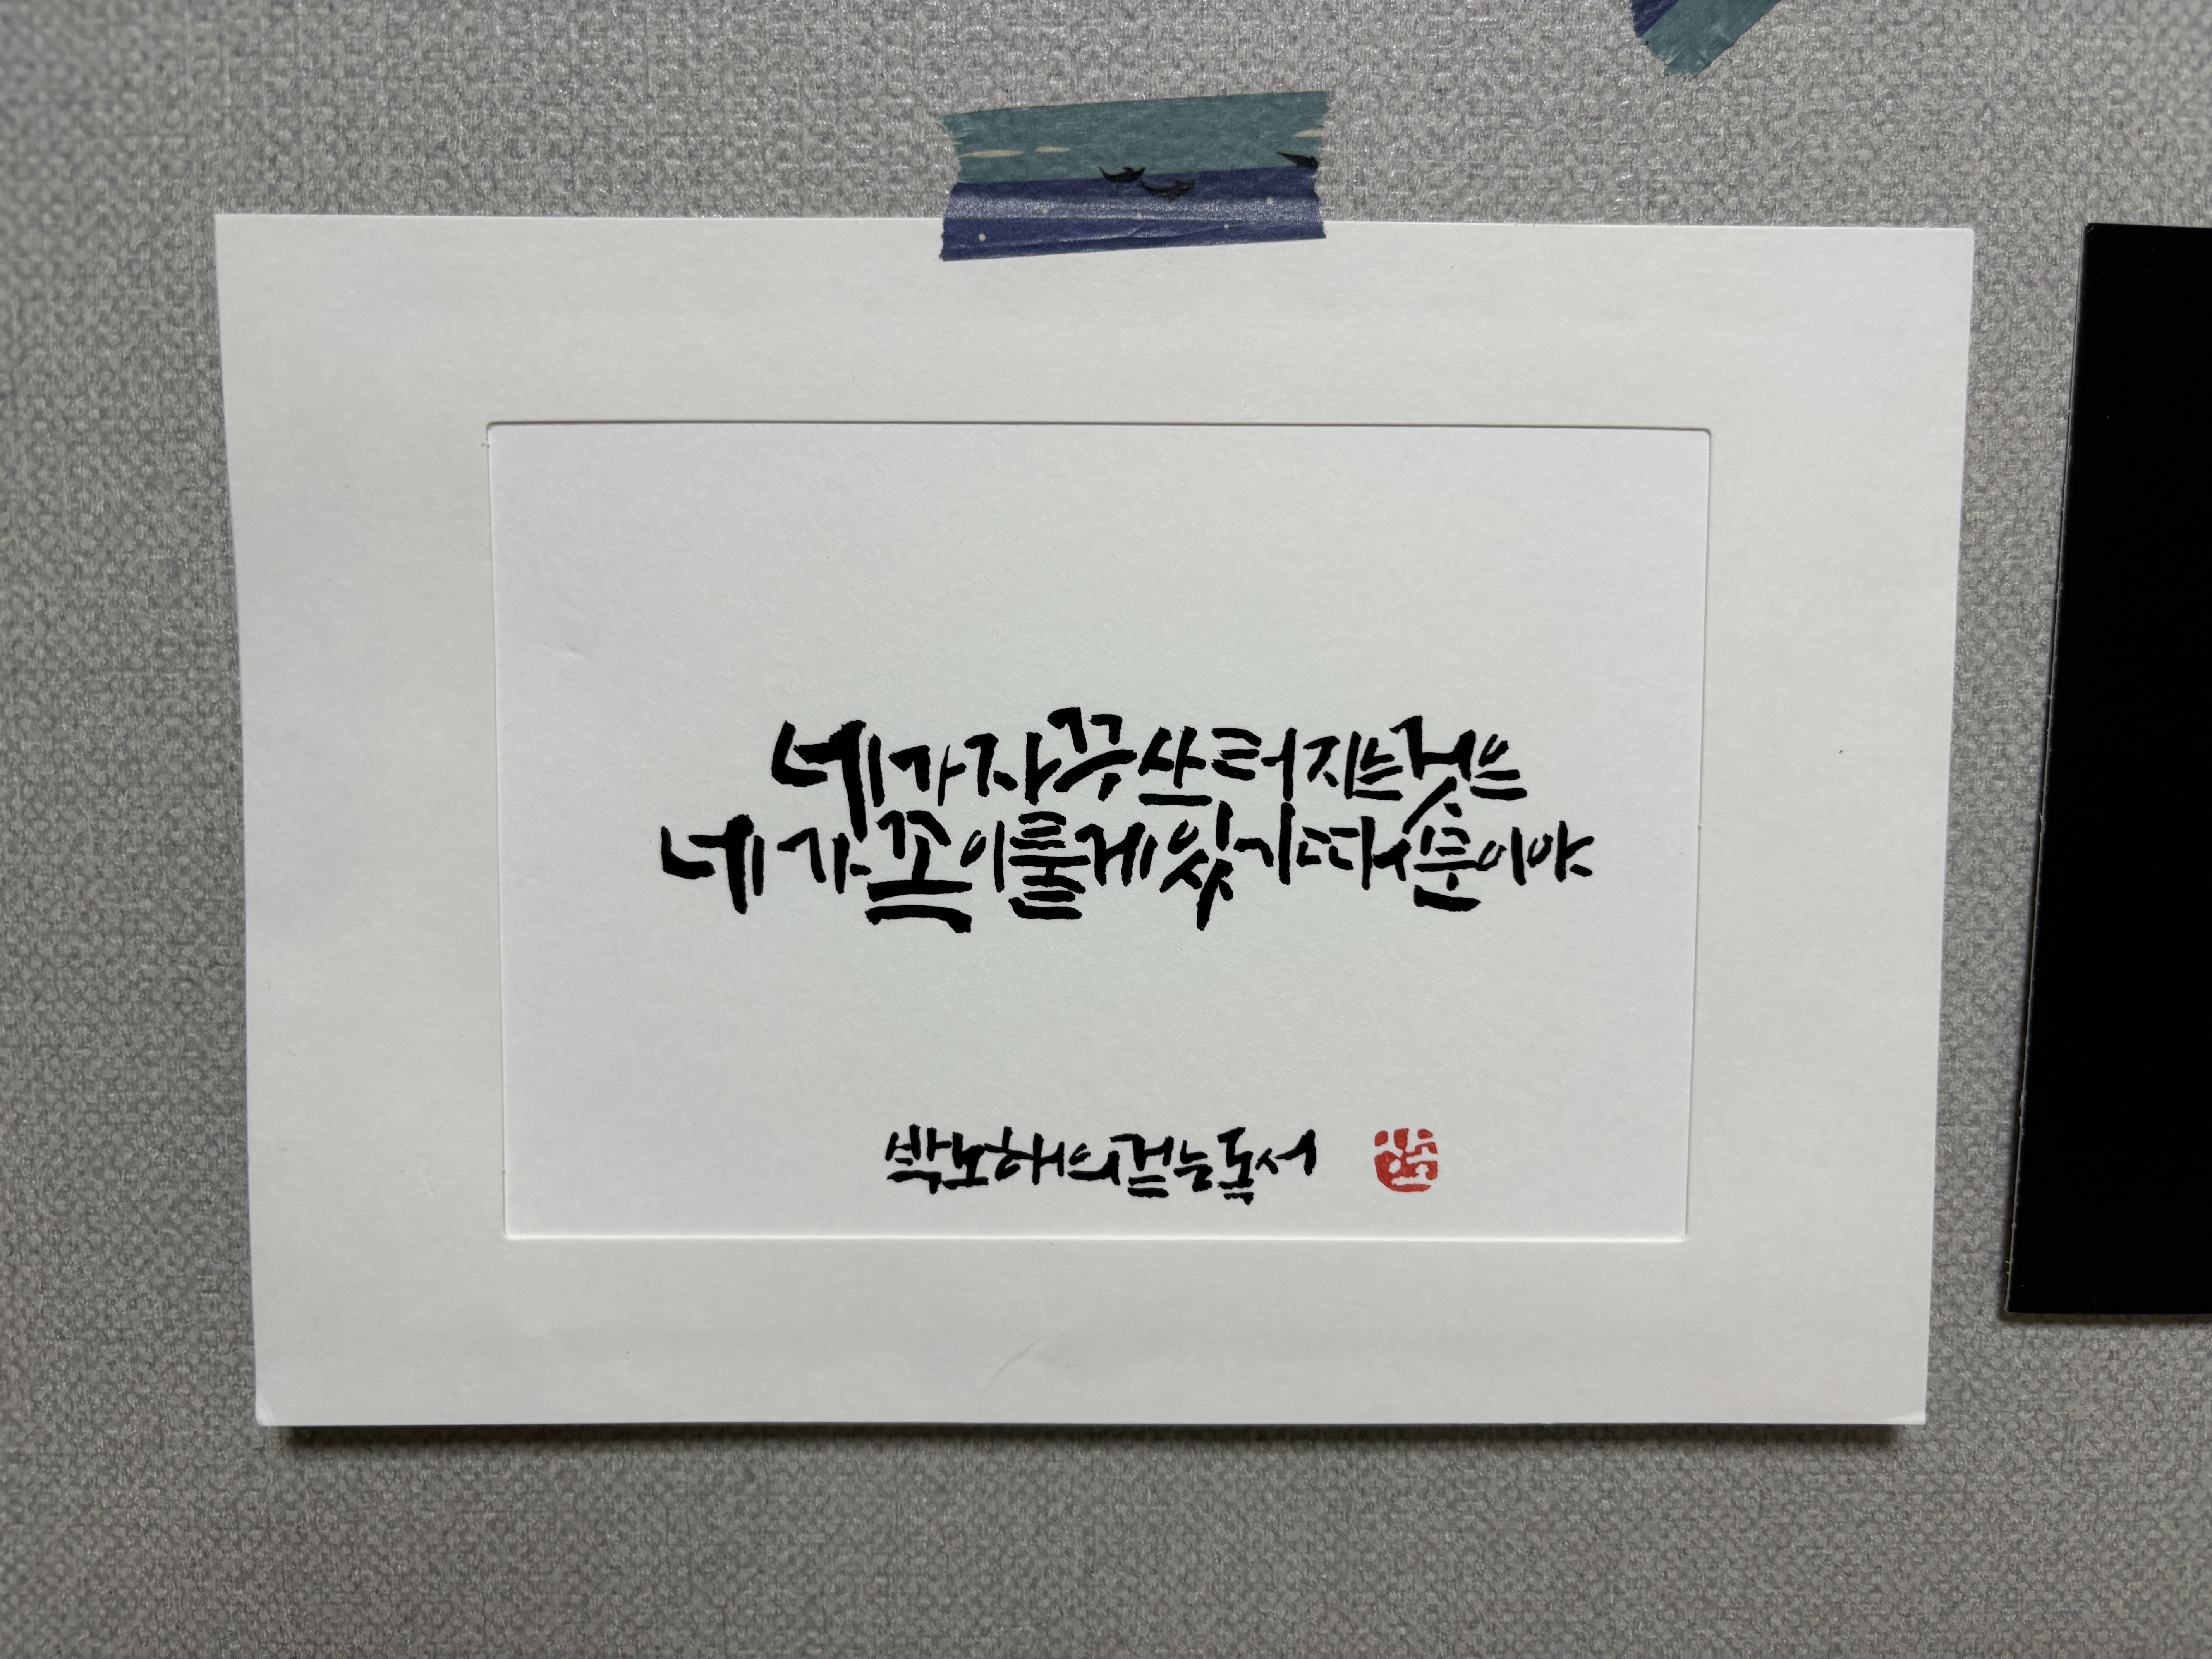 네가 자꾸 쓰러지는 것은
네가 꼭 이룰 게 있기 때문이야
박노해의 걷는 독서